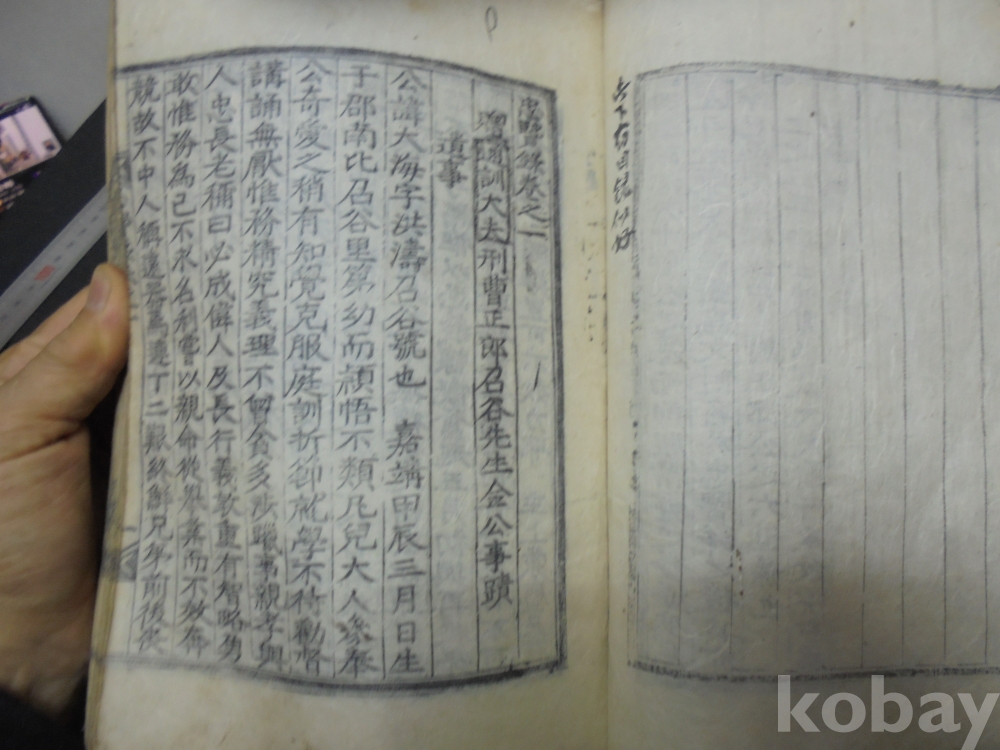 忠賢錄卷之一
贈通訓大夫刑曹正郎召谷先生金公事蹟
遺事
公諱大海字洪濤召谷號也 嘉靖甲辰三月日生
于郡南比召谷里第幼而穎悟不類凡兒大人參奉
公奇愛之稍有知覚克服庭訓折節就學不待勸督
講誦無厭惟務精究義理不貪多涉獵事親孝與
人忠長老稱曰必成偉人及長行義敦重有智略
敢惟務為己不求名利嘗以親命從舉業而不
競故不中人丁二艱兄弟前後
kobay